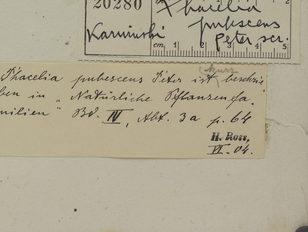 20280 Phacelia
Karwinski pubescens
Peter scr.
cm 1 2 3 4 5
kurz
Phacelia pubescens Peter ist beschrie
ben in „Natürliche Pflanzenfa
milien Bd. IV, Abt. 3a p. 64
H. Ross,
VI. 04.